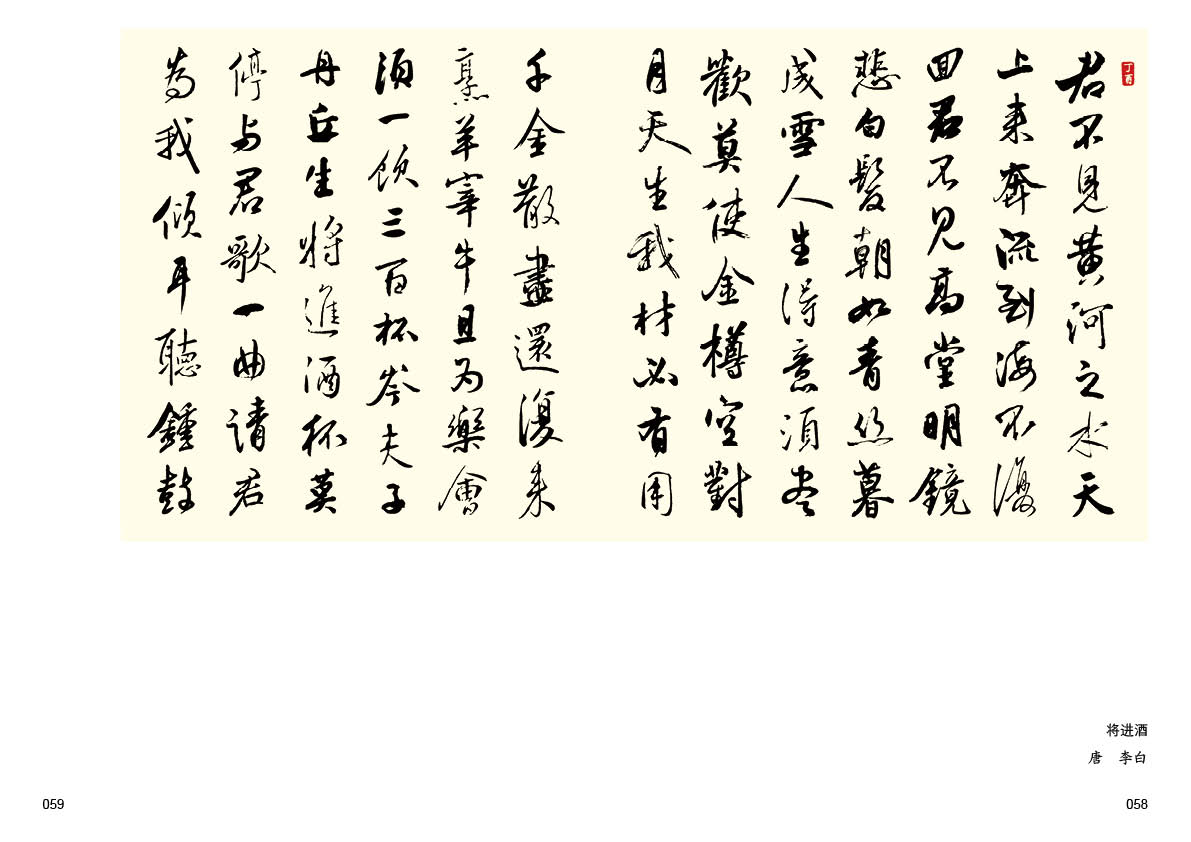 丁酉
君不見黄河之水天
上来奔流到海不復
回君不见高堂明鏡
悲白髮朝如青丝暮
成雪人生得意須尽
歡莫使金樽空對
月天生我材必有用
千金散盡還復来
烹羊宰牛且为樂會
須一饮三百杯岑夫子
丹丘生将進酒杯莫
停与君歌一曲請君
為我傾耳聽鍾鼓
将进酒
唐 李白
059
058